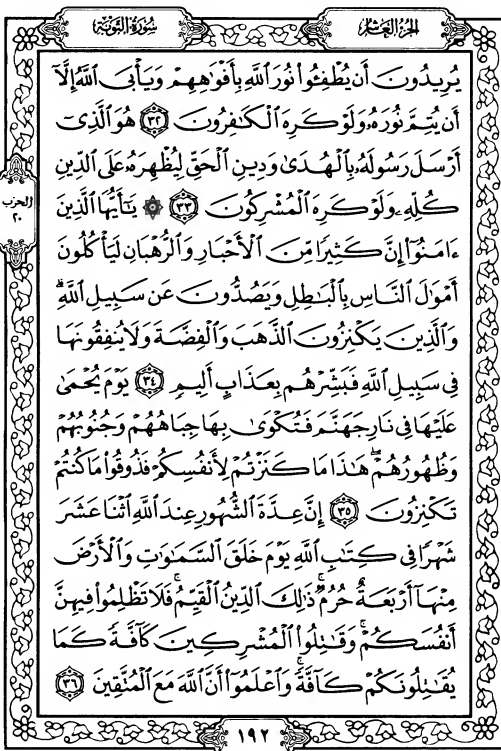 الجزء العاشر
سورة التوبة
يُرِيدُونَ أَن يُطْفِـُٔوا۟ نُورَ ٱللَّهِ بِأَفْوَٰهِهِمْ وَيَأْبَى ٱللَّهُ إِلَّآ
أَن يُتِمَّ نُورَهُۥ وَلَوْ كَرِهَ ٱلْكَـٰفِرُونَ ٣٢ هُوَ ٱلَّذِىٓ
أَرْسَلَ رَسُولَهُۥ بِٱلْهُدَىٰ وَدِينِ ٱلْحَقِّ لِيُظْهِرَهُۥ عَلَى ٱلدِّينِ
كُلِّهِۦ وَلَوْ كَرِهَ ٱلْمُشْرِكُونَ ٣٣ ۞ يَـٰٓأَيُّهَا ٱلَّذِينَ
ءَامَنُوٓا۟ إِنَّ كَثِيرًا مِّنَ ٱلْأَحْبَارِ وَٱلرُّهْبَانِ لَيَأْكُلُونَ
أَمْوَٰلَ ٱلنَّاسِ بِٱلْبَـٰطِلِ وَيَصُدُّونَ عَن سَبِيلِ ٱللَّهِ ۗ
وَٱلَّذِينَ يَكْنِزُونَ ٱلذَّهَبَ وَٱلْفِضَّةَ وَلَا يُنفِقُونَهَا
فِى سَبِيلِ ٱللَّهِ فَبَشِّرْهُم بِعَذَابٍ أَلِيمٍ ٣٤ يَوْمَ يُحْمَىٰ
عَلَيْهَا فِى نَارِ جَهَنَّمَ فَتُكْوَىٰ بِهَا جِبَاهُهُمْ وَجُنُوبُهُمْ
وَظُهُورُهُمْ ۖ هَـٰذَا مَا كَنَزْتُمْ لِأَنفُسِكُمْ فَذُوقُوا۟ مَا كُنتُمْ
تَكْنِزُونَ ٣٥ إِنَّ عِدَّةَ ٱلشُّهُورِ عِندَ ٱللَّهِ ٱثْنَا عَشَرَ
شَهْرًا فِى كِتَـٰبِ ٱللَّهِ يَوْمَ خَلَقَ ٱلسَّمَـٰوَٰتِ وَٱلْأَرْضَ
مِنْهَآ أَرْبَعَةٌ حُرُمٌ ۚ ذَٰلِكَ ٱلدِّينُ ٱلْقَيِّمُ ۚ فَلَا تَظْلِمُوا۟ فِيهِنَّ
أَنفُسَكُمْ ۚ وَقَـٰتِلُوا۟ ٱلْمُشْرِكِينَ كَآفَّةً كَمَا
يُقَـٰتِلُونَكُمْ كَآفَّةً ۚ وَٱعْلَمُوٓا۟ أَنَّ ٱللَّهَ مَعَ ٱلْمُتَّقِينَ ٣٦
الحزب
٢٠
١٩٢